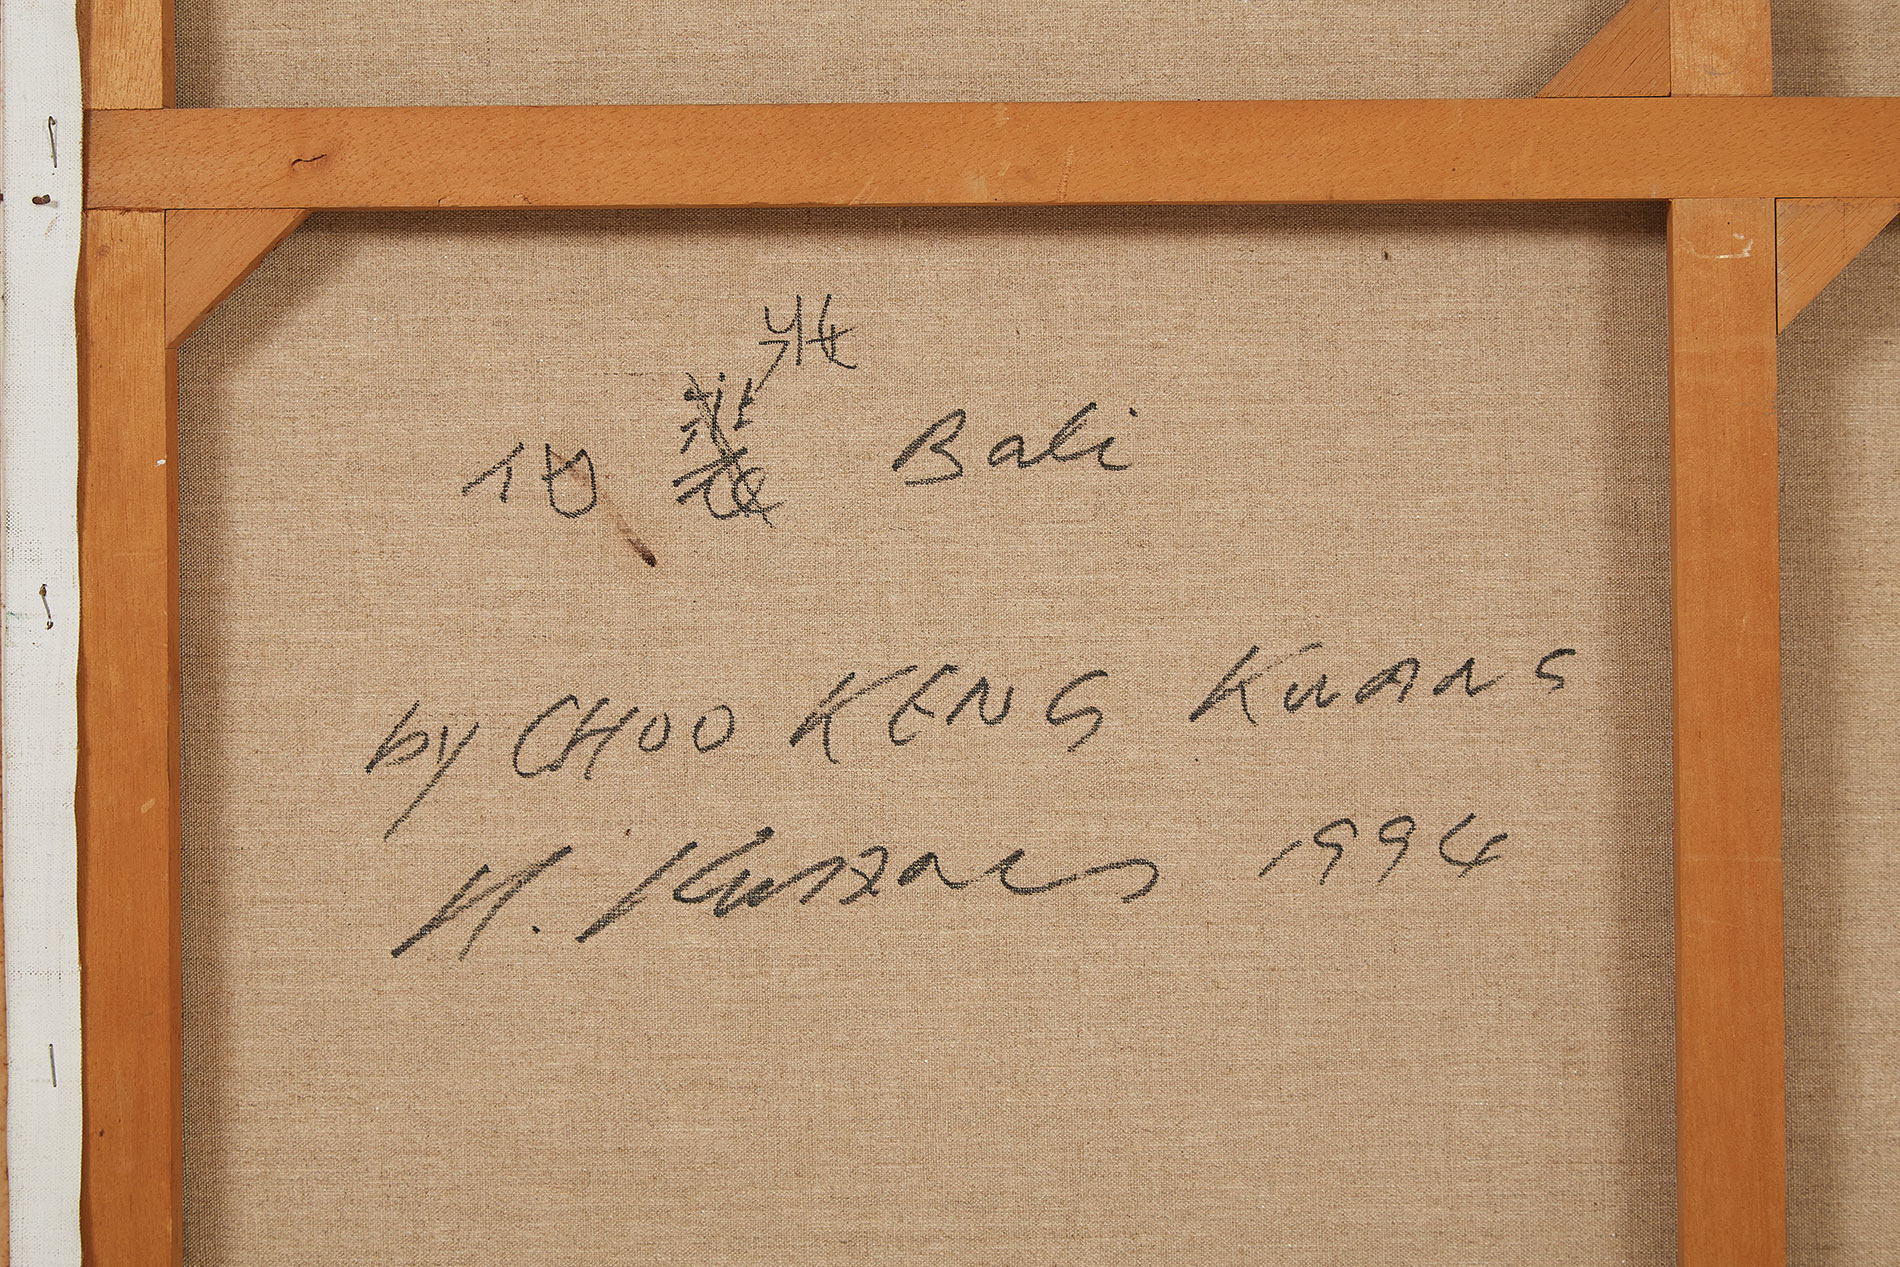 Bali
by CHOO KENG KWANG
K. Kwang 1994